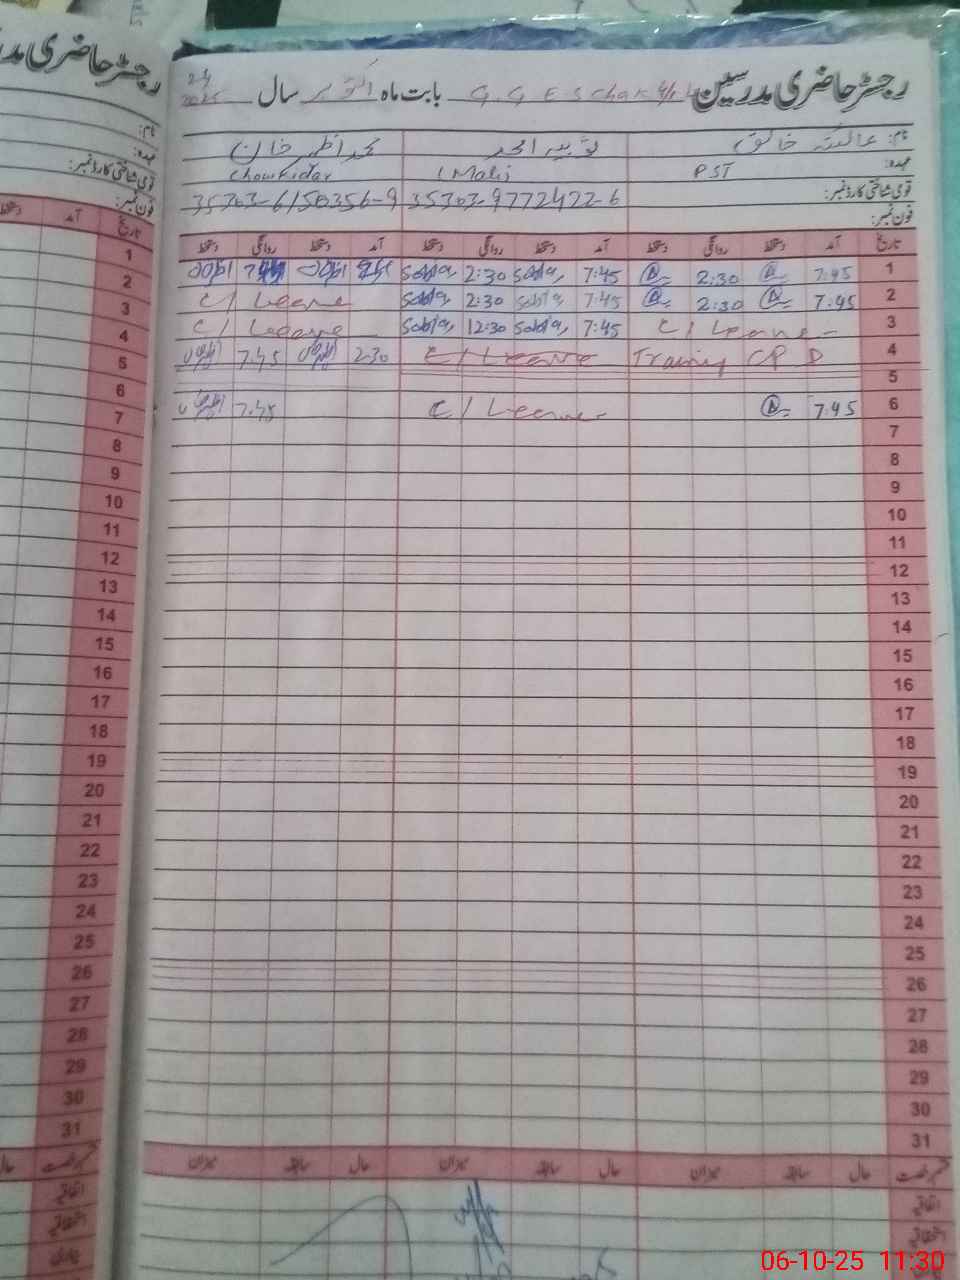 رجسٹر حاضری مدرسین G.G.E.S chak بابت ماہ اکتوبر سال 2025
نام: خالق محمد اظہر خان
عہدہ: PST Mali Chowkidar
قومی شناختی کارڈ نمبر: 35303-9772422-6 35303-6150356-9
فون نمبر:
تاریخ آمد دستخط روانگی دستخط آمد دستخط روانگی دستخط آمد دستخط روانگی دستخط
1 7:45 2:30 7:45 Sobia 2:30 Sobia
2 7:45 2:30 7:45 Sobia 2:30 Sobia C/Leave
3 C/Leave 7:45 Sobia 12:30 Sobia C/Leave
4 Training CPD C/Leave 2:30 7:45
5
6 7:45 C/Leave 7:45
7
8
9
10
11
12
13
14
15
16
17
18
19
20
21
22
23
24
25
26
27
28
29
30
31
قسم رخصت حال سابقہ میزان حال سابقہ میزان حال سابقہ میزان
اتفاقیہ
استحقاقیہ
بیماری
رجسٹر حاضری
نام:
عہدہ:
قومی شناختی کارڈ نمبر:
فون نمبر:
تاریخ آمد دستخط
1
2
3
4
5
6
7
8
9
10
11
12
13
14
15
16
17
18
19
20
21
22
23
24
25
26
27
28
29
30
31
قسم رخصت حال
اتفاقیہ
استحقاقیہ
بیماری
06-10-25 11:30